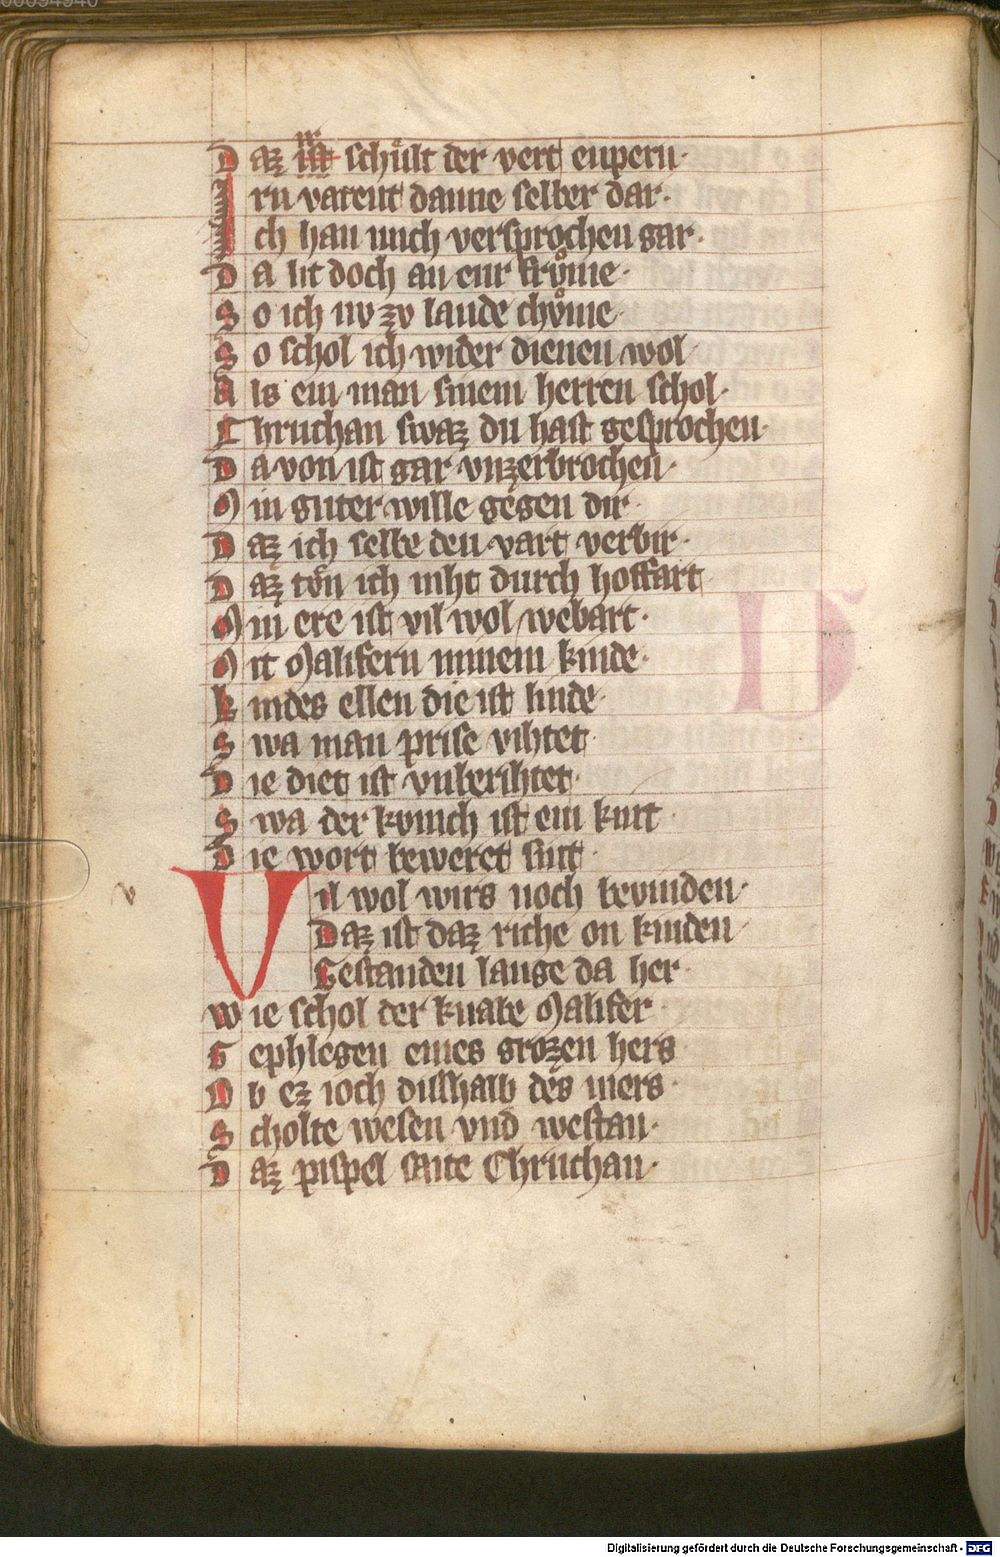 00094940
Daz ist schült der vert enpern·
Irn varent danne selber dar·
Ich han mich versprochen gar·
Da lit doch an eur frvͦme·
So ich nv zv lande chvͦme·
So schol ich wider dienen wol
Als ein man sinem herren schol·
Chruchan swaz du hast gesprochen·
Da von ist gar vnzerbrochen·
Min guter wille gegen dir·
Daz ich selbe den vart verbir·
Daz tvͦn ich niht durch hoffart
Min ere ist vil wol bewart·
Mit Malifern minem kinde·
Kindes ellen die ist linde·
Swa man prise vihtet
Die diet ist vnberihtet·
Swa der kvnich ist ein kint
Die wort beweret sint·
Vil wol wirs noch bevinden·
Daz ist daz riche on kinden
Gestanden lange da her·
Wie schol der knabe Malifer
Gephlegen eines grozen hers
Ob ez ioch dishalb des mers·
Scholte wesen vnd westan·
Daz pispel saite Chruchan·
v
Digitalisierung gefördert durch die Deutsche Forschungsgemeinschaft - DFG